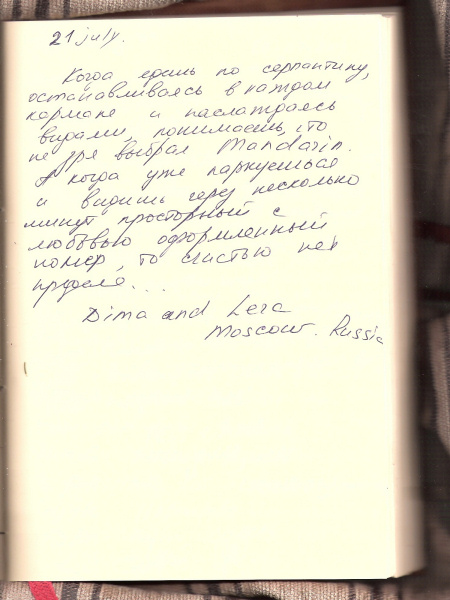 21 july.
Когда едешь по серпантину,
останавливаясь в каждом
кармане и наслаждаясь
видами, понимаешь, что
не зря выбрал Mandarin.
А когда уже паркуешься
и видишь через несколько
минут просторный с
любовью оформленный
номер, то счастью нет
предела...
Dima and Lera
Moscow. Russia